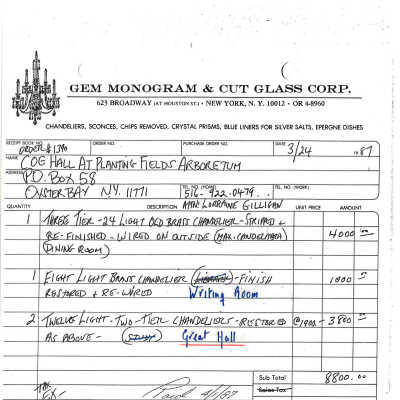 GEM MONOGRAM & CUT GLASS CORP.
623 BROADWAY (AT HOUSTON ST.) • NEW YORK, N. Y. 10012 • OR 4-8960
CHANDELIERS, SCONCES, CHIPS REMOVED, CRYSTAL PRISMS, BLUE LINERS FOR SILVER SALTS, EPERGNE DISHES
RECEIPT BOOK NO. ORDER NO. PURCHASE ORDER NO. DATE 3/24 1987
ORDER # 1390
NAME COE HALL AT PLANTING FIELDS ARBORETUM
ADDRESS P.O. BOX 58
OYSTER BAY N.Y. 11771 TEL. NO. (HOME) 516-922-0479 TEL. NO. (WORK)
ATTN LORRAINE GILLIGAN
QUANTITY DESCRIPTION UNIT PRICE AMOUNT
1 THREE TIER-24 LIGHT OLD BRASS CHANDELIER-STRIPPED +
RE-FINISHED-WIRED ON OUTSIDE 4000
(DINING ROOM)
1 EIGHT LIGHT BRASS CHANDELIER (LIBRARY)-FINISH 1000
RESTORED + RE-WIRED Writing Room
2 TWELVE LIGHT-TWO-TIER CHANDELIERS-RESTORED @1900- 3800
AS ABOVE- (STUDY) Great Hall
Sub Total 8800.00
Paid 4/1/87 Sales Tax